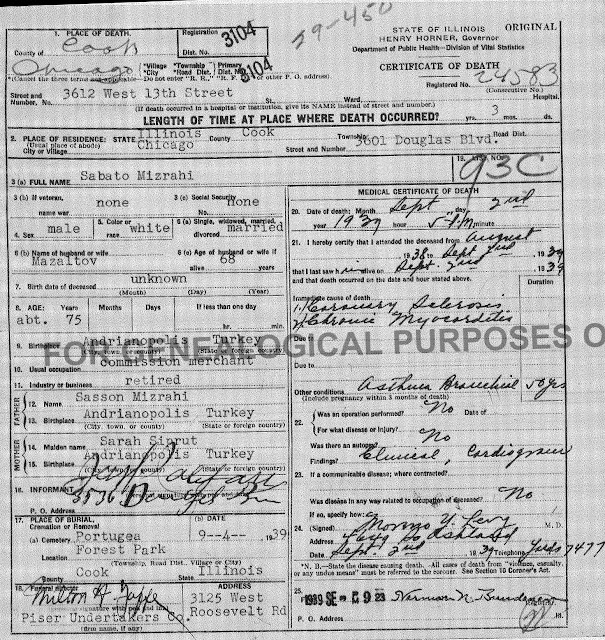 29-450
ORIGINAL
1. PLACE OF DEATH.
Registration
Dist. No. 3104
STATE OF ILLINOIS
HENRY HORNER, Governor
Department of Public Health—Division of Vital Statistics
County of Cook
Chicago
*Village *Township
*City *Road Dist.
Primary
Dist. No. 3104
CERTIFICATE OF DEATH
*(Cancel the three terms not applicable—Do not enter "R. R.," "R. F. D.," or other P. O. address)
Registered No. 24583
(Consecutive No.)
Street and
Number, No. 3612 West 13th Street St., Ward, Hospital.
(If death occurred in a hospital or institution, give its NAME instead of street and number.)
LENGTH OF TIME AT PLACE WHERE DEATH OCCURRED? yrs. 3 mos. ds.
2. PLACE OF RESIDENCE: STATE Illinois County Cook Township Road Dist.
(Usual place of abode)
City or Village Chicago Street and Number 3601 Douglas Blvd.
3 (a) FULL NAME Sabato Mizrahi
19. LIST NO. 93C
3 (b) If veteran, name war none
3 (c) Social Security No. none
4. Sex male
5. Color or race white
6 (a) Single, widowed, married, divorced married
6 (b) Name of husband or wife Mazaltov
6 (c) Age of husband or wife if alive 68 years
7. Birth date of deceased unknown
(Month) (Day) (Year)
8. AGE: Years Months Days If less than one day
abt. 75 hr. min.
9. Birthplace Andrianopolis Turkey
(State or foreign country)
10. Usual occupation commission merchant
11. Industry or business retired
FATHER
12. Name Sasson Mizrahi
13. Birthplace Andrianopolis Turkey
(City, town, or county) (State or foreign country)
MOTHER
14. Maiden name Sarah Siprut
15. Birthplace Andrianopolis Turkey
(City, town, or county) (State or foreign country)
16. INFORMANT
3536
P. O. Address
17. PLACE OF BURIAL, Cremation or Removal
(b) DATE
(a) Cemetery Portugea 9--4-- 1939
Location Forest Park
(Township, Road Dist., Village or City)
County Cook State Illinois
18. Funeral director ADDRESS
Milton A.
3125 West
Roosevelt Rd
Piser Undertakers Co.
(firm name, if any)
MEDICAL CERTIFICATE OF DEATH
20. Date of death: Month Sept day 2nd
year 1939 hour 5 P.M. minute
21. I hereby certify that I attended the deceased from August
1938 to Sept 2nd, 1939
that I last saw him alive on Sept. 2nd 1939
and that death occurred on the date and hour stated above.
Duration
Immediate cause of death
1. Coronary Sclerosis
2. Chronic Myocarditis
Due to
Due to
Other conditions Asthma Bronchial 50 yrs
(Include pregnancy within 3 months of death)
22. Was an operation performed? No Date of
For what disease or injury?
Was there an autopsy? No
Findings? Clinical, Cardiogram
23. If a communicable disease; where contracted?
Was disease in any way related to occupation of deceased? No
If so, specify how:
24. (Signed) Morris Y. Levy M. D.
Address Ashland
Date Sept. 2nd 1939 Telephone 7477
*N. B.—State the disease causing death. All cases of death from "violence, casualty, or any undue means" must be referred to the coroner. See Section 10 Coroner's Act.
25. 1939 SE 9 23 Herman N. Bundesen
P. O. Address
FOR GENEALOGICAL PURPOSES O